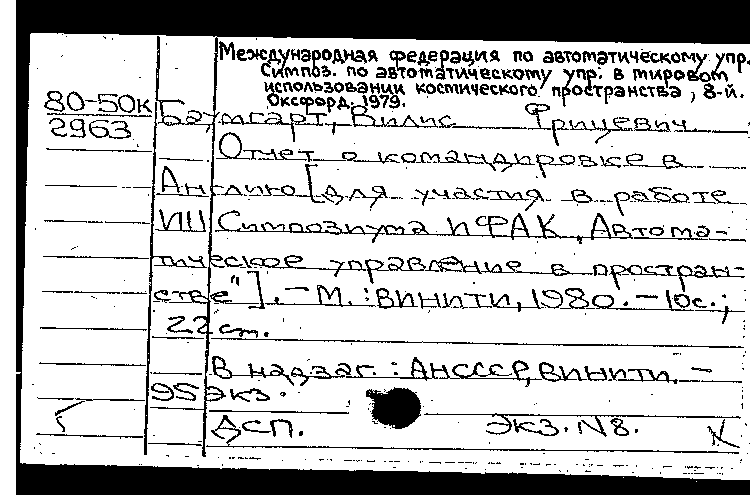 Международная федерация по автоматическому упр.
Симпоз. по автоматическому упр. в мировом
использовании космического пространства, 8-й.
Оксфорд, 1979.
80-50к
2963
Баумгарт, Вилис Фрицевич.
Отчет о командировке в
Англию [для участия в работе
VIII Симпозиума ИФАК „Автома-
тическое управление в простран-
стве"]. - М. : ВИНИТИ, 1980. - 10с.;
22 см.
В надзаг. : АНСССР, ВИНИТИ. -
95 экз.
ДСП. экз. N8.